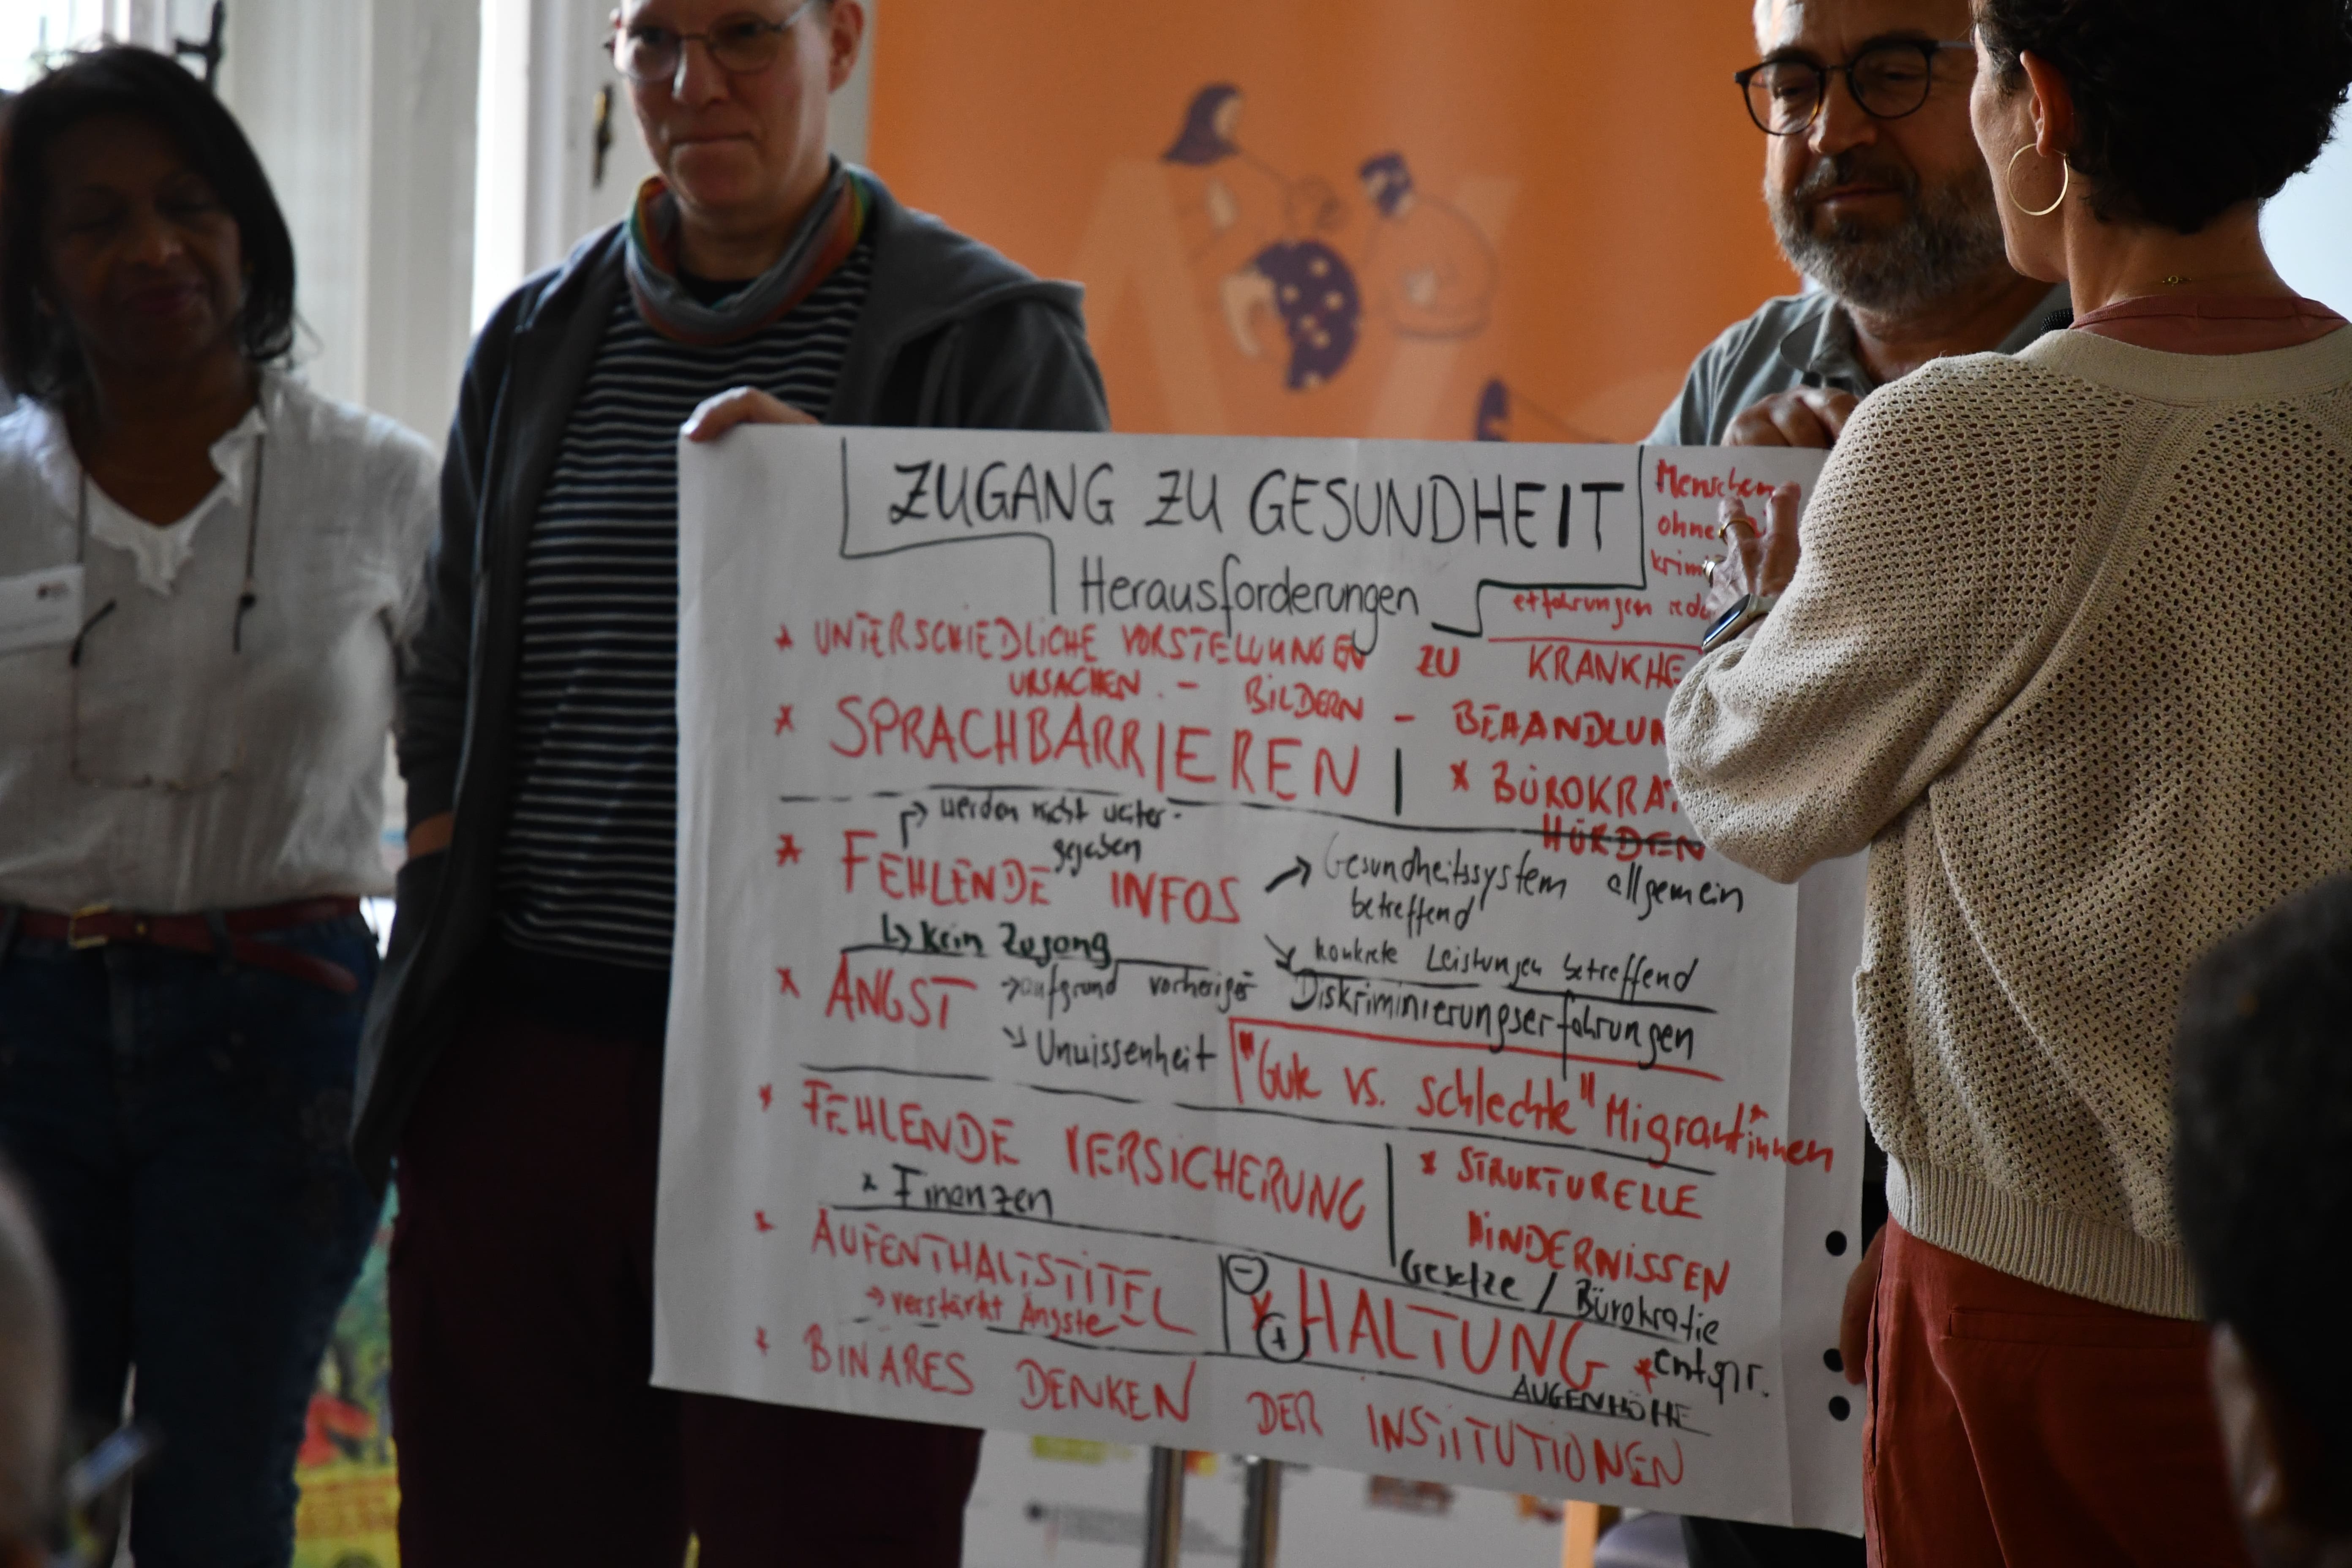 ZUGANG ZU GESUNDHEIT
Menschen
ohne
Herausforderungen
erfahrungen
* UNTERSCHIEDLICHE VORSTELLUNGEN ZU KRANKHE
URSACHEN - BILDERN - BEHANDLUN
* SPRACHBARRIEREN
* BÜROKRAT
HÜRDEN
→ werden nicht weiter-
gegeben
* FEHLENDE INFOS
→ Gesundheitssystem allgemein
betreffend
↳ Kein Zugang
↘ konkrete Leistungen betreffend
* ANGST → aufgrund vorheriger Diskriminierungserfahrungen
↘ Unwissenheit
"Gute vs. schlechte" Migrant*innen
* FEHLENDE VERSICHERUNG
* Finanzen
* STRUKTURELLE
HINDERNISSEN
Gesetze / Bürokratie
* AUFENTHALTSTITEL
→ verstärkt Ängste
- * + HALTUNG
* entspr.
AUGENHÖHE
* BINÄRES DENKEN DER INSTITUTIONEN